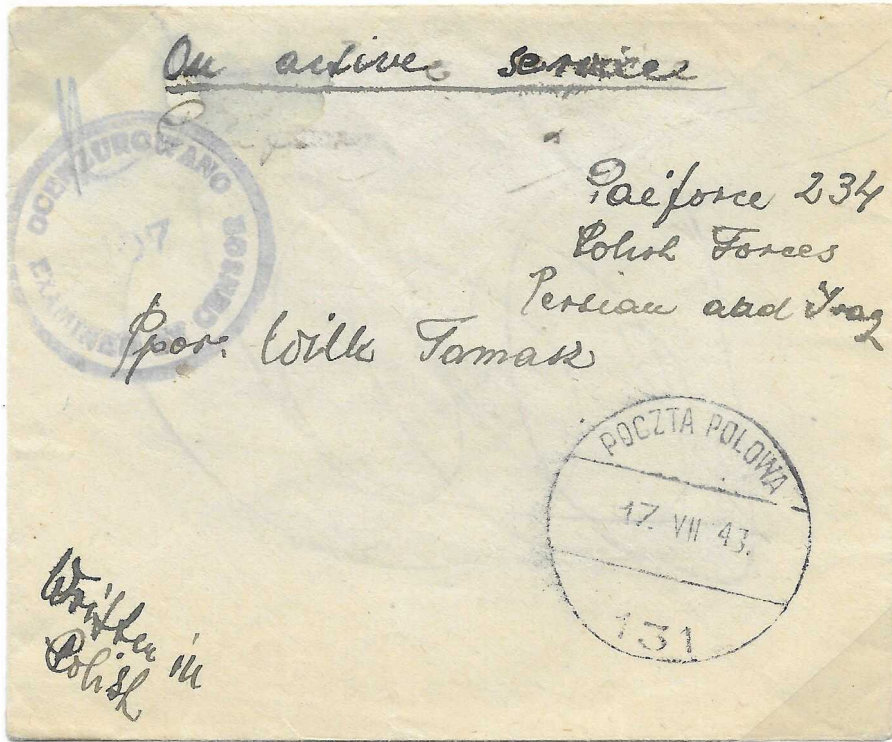 On active service
OCENZUROWANO
EXAMINED BY CENSOR
Paiforce 234
Polish Forces
Persian and Iraq
Ppor. Wilk Tomasz
POCZTA POLOWA
17. VII 43.
131
Written in
Polish